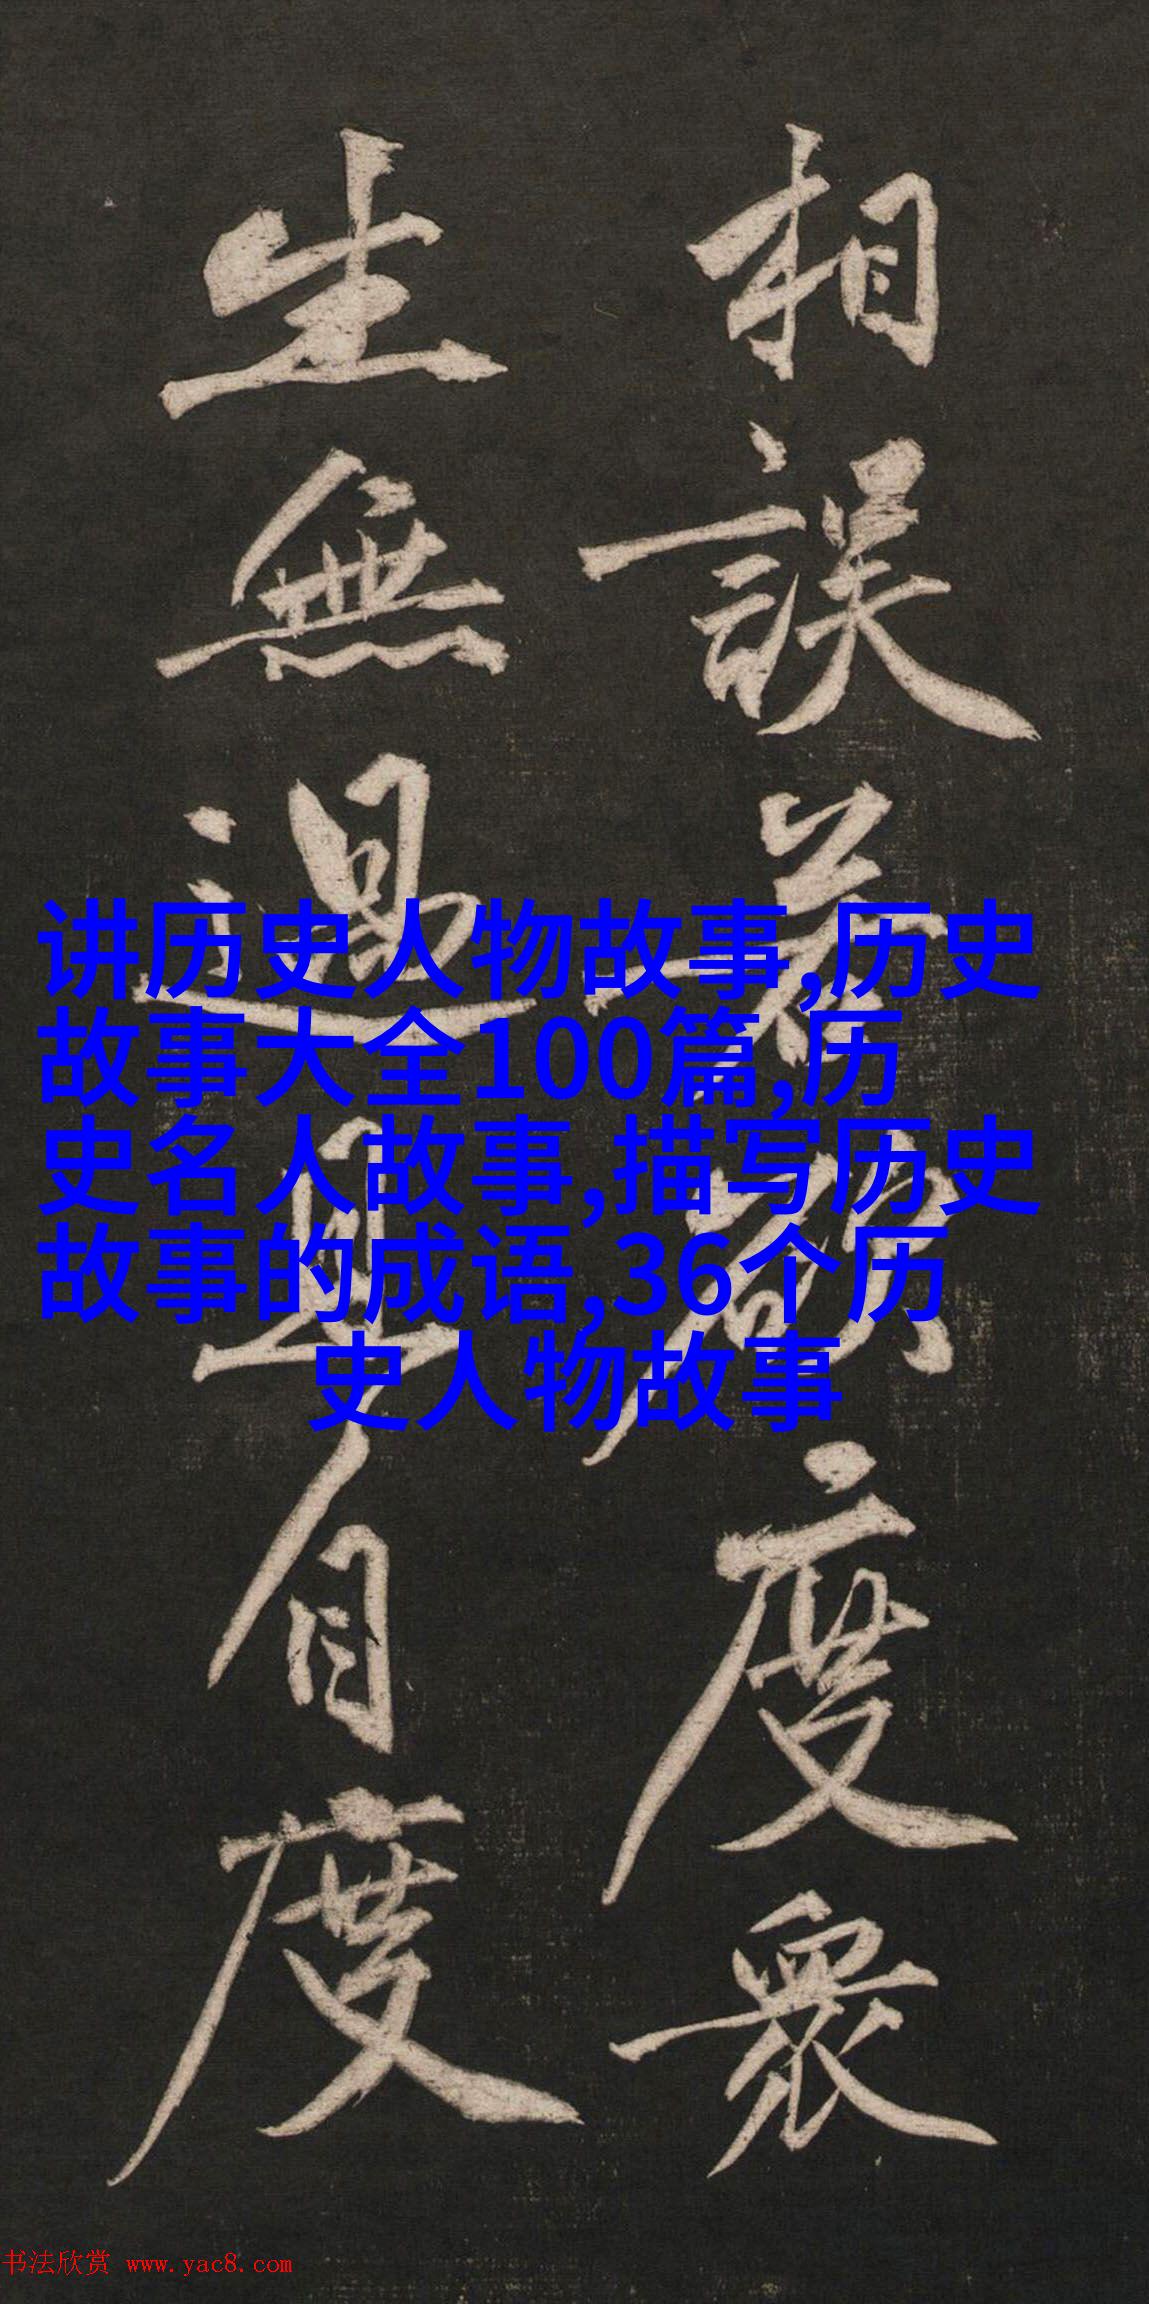 相誤若欲度衆
生無過且自度
讲历史人物故事,历史
故事大全100篇,历
史名人故事,描写历史
故事的成语,36个历
史人物故事
书法欣赏 www.yac8.com